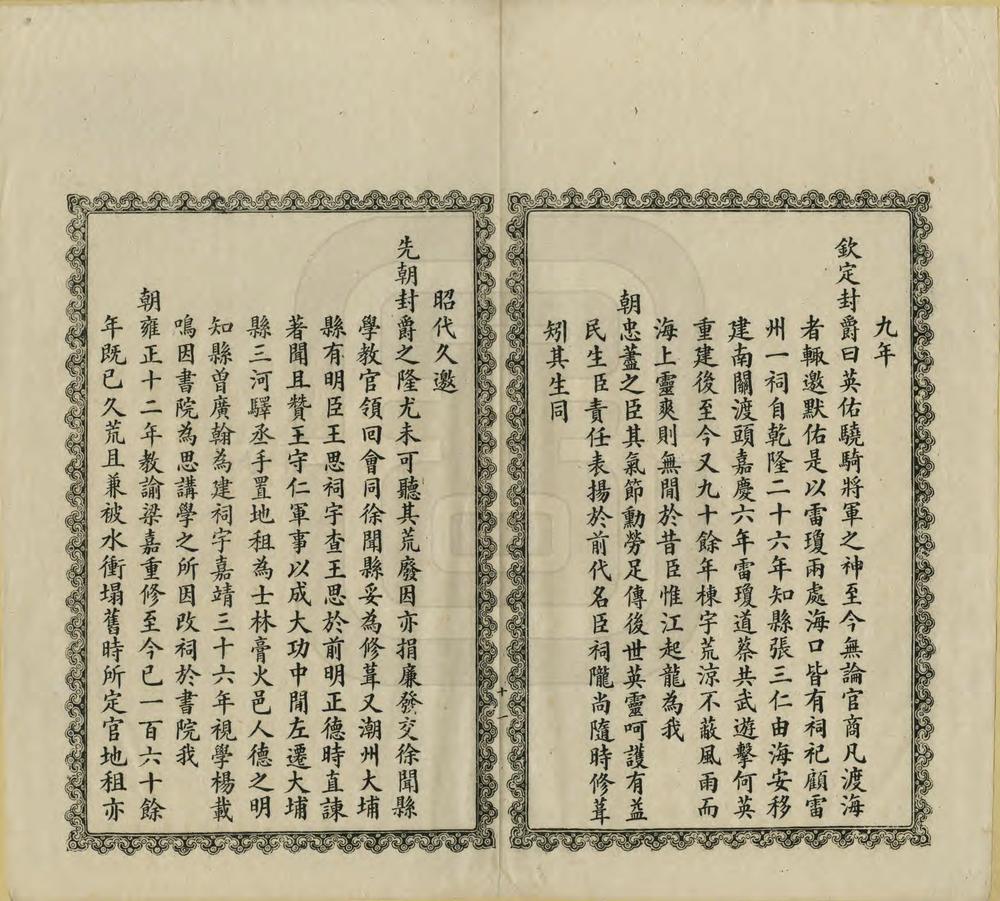 九年
欽定封爵曰英佑驍騎將軍之神至今無論官商凡渡海
者輒邀默佑是以雷瓊兩處海口皆有祠祀顧雷
州一祠自乾隆二十六年知縣張三仁由海安移
建南關渡頭嘉慶六年雷瓊道蔡共武遊擊何英
重建後至今又九十餘年棟宇荒涼不蔽風雨而
海上靈爽則無間於昔臣惟江起龍為我
朝忠藎之臣其氣節勳勞足傳後世英靈呵護有益
民生臣責任表揚於前代名臣祠隴尚隨時修葺
矧其生同
十一
昭代久邀
先朝封爵之隆尤未可聽其荒廢因亦捐廉發交徐聞縣
學教官領回會同徐聞縣妥為修葺又潮州大埔
縣有明臣王思祠宇查王思於前明正德時直諫
著聞且贊王守仁軍事以成大功中閒左遷大埔
縣三河驛丞手置地租為士林膏火邑人德之明
知縣曾廣翰為建祠宇嘉靖三十六年視學楊載
鳴因書院為思講學之所因改祠於書院我
朝雍正十二年教諭梁嘉重修至今已一百六十餘
年既已久荒且兼被水衝塌舊時所定官地租亦